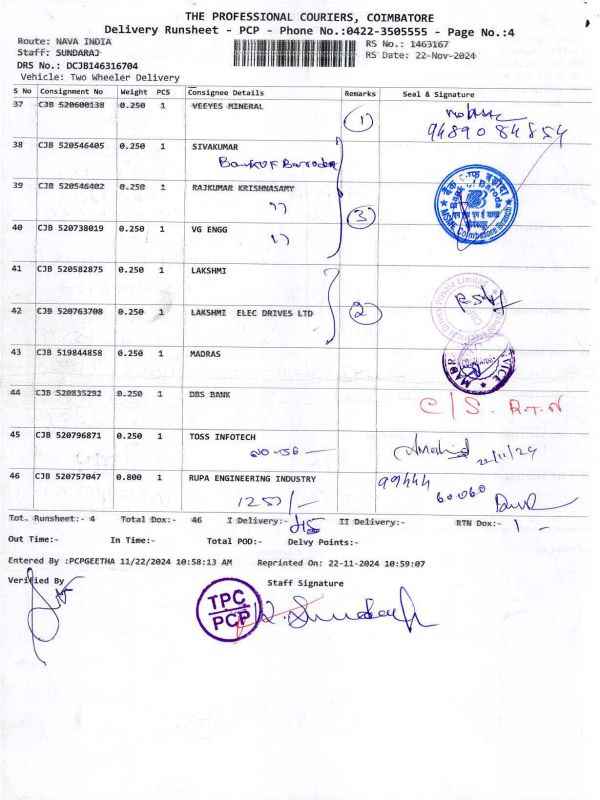 THE PROFESSIONAL COURIERS, COIMBATORE
Delivery Runsheet - PCP - Phone No.:0422-3505555 - Page No.:4
Route: NAVA INDIA RS No.: 1463167
Staff: SUNDARAJ RS Date: 22-Nov-2024
DRS No.: DCJB146316704
Vehicle: Two Wheeler Delivery
S No Consignment No Weight PCS Consignee Details Remarks Seal & Signature
37 CJB 520600138 0.250 1 VEEYES MINERAL
1
94890 84854
38 CJB 520546405 0.250 1 SIVAKUMAR
Bank of Baroda
39 CJB 520546402 0.250 1 RAJKUMAR KRISHNASAMY
3
40 CJB 520738019 0.250 1 VG ENGG
Bank of Baroda
Coimbatore Branch
41 CJB 520582875 0.250 1 LAKSHMI
42 CJB 520763708 0.250 1 LAKSHMI ELEC DRIVES LTD
2
43 CJB 519844858 0.250 1 MADRAS
44 CJB 520835292 0.250 1 DBS BANK
C/S. R.T.N
45 CJB 520796871 0.250 1 TOSS INFOTECH
22/11/24
46 CJB 520757047 0.800 1 RUPA ENGINEERING INDUSTRY
99444
60060
Tot. Runsheet:- 4 Total Dox:- 46 I Delivery:- 45 II Delivery:- RTN Dox:- 1
Out Time:- In Time:- Total POD:- Delvy Points:-
Entered By :PCPGEETHA 11/22/2024 10:58:13 AM Reprinted On: 22-11-2024 10:59:07
Verified By Staff Signature
TPC
PCP